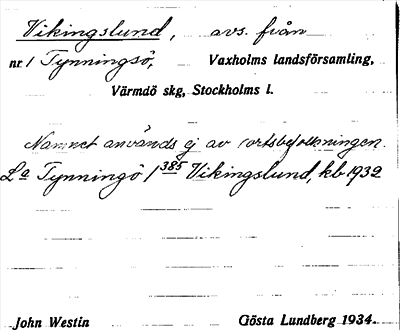 Vikingslund, avs. från
nr 1 Tynningsö, Vaxholms landsförsamling,
Värmdö skg, Stockholms l.
Namnet används ej av ortsbefolkningen.
La Tynningö 1 385 Vikingslund, kb 1932
John Westin Gösta Lundberg 1934.